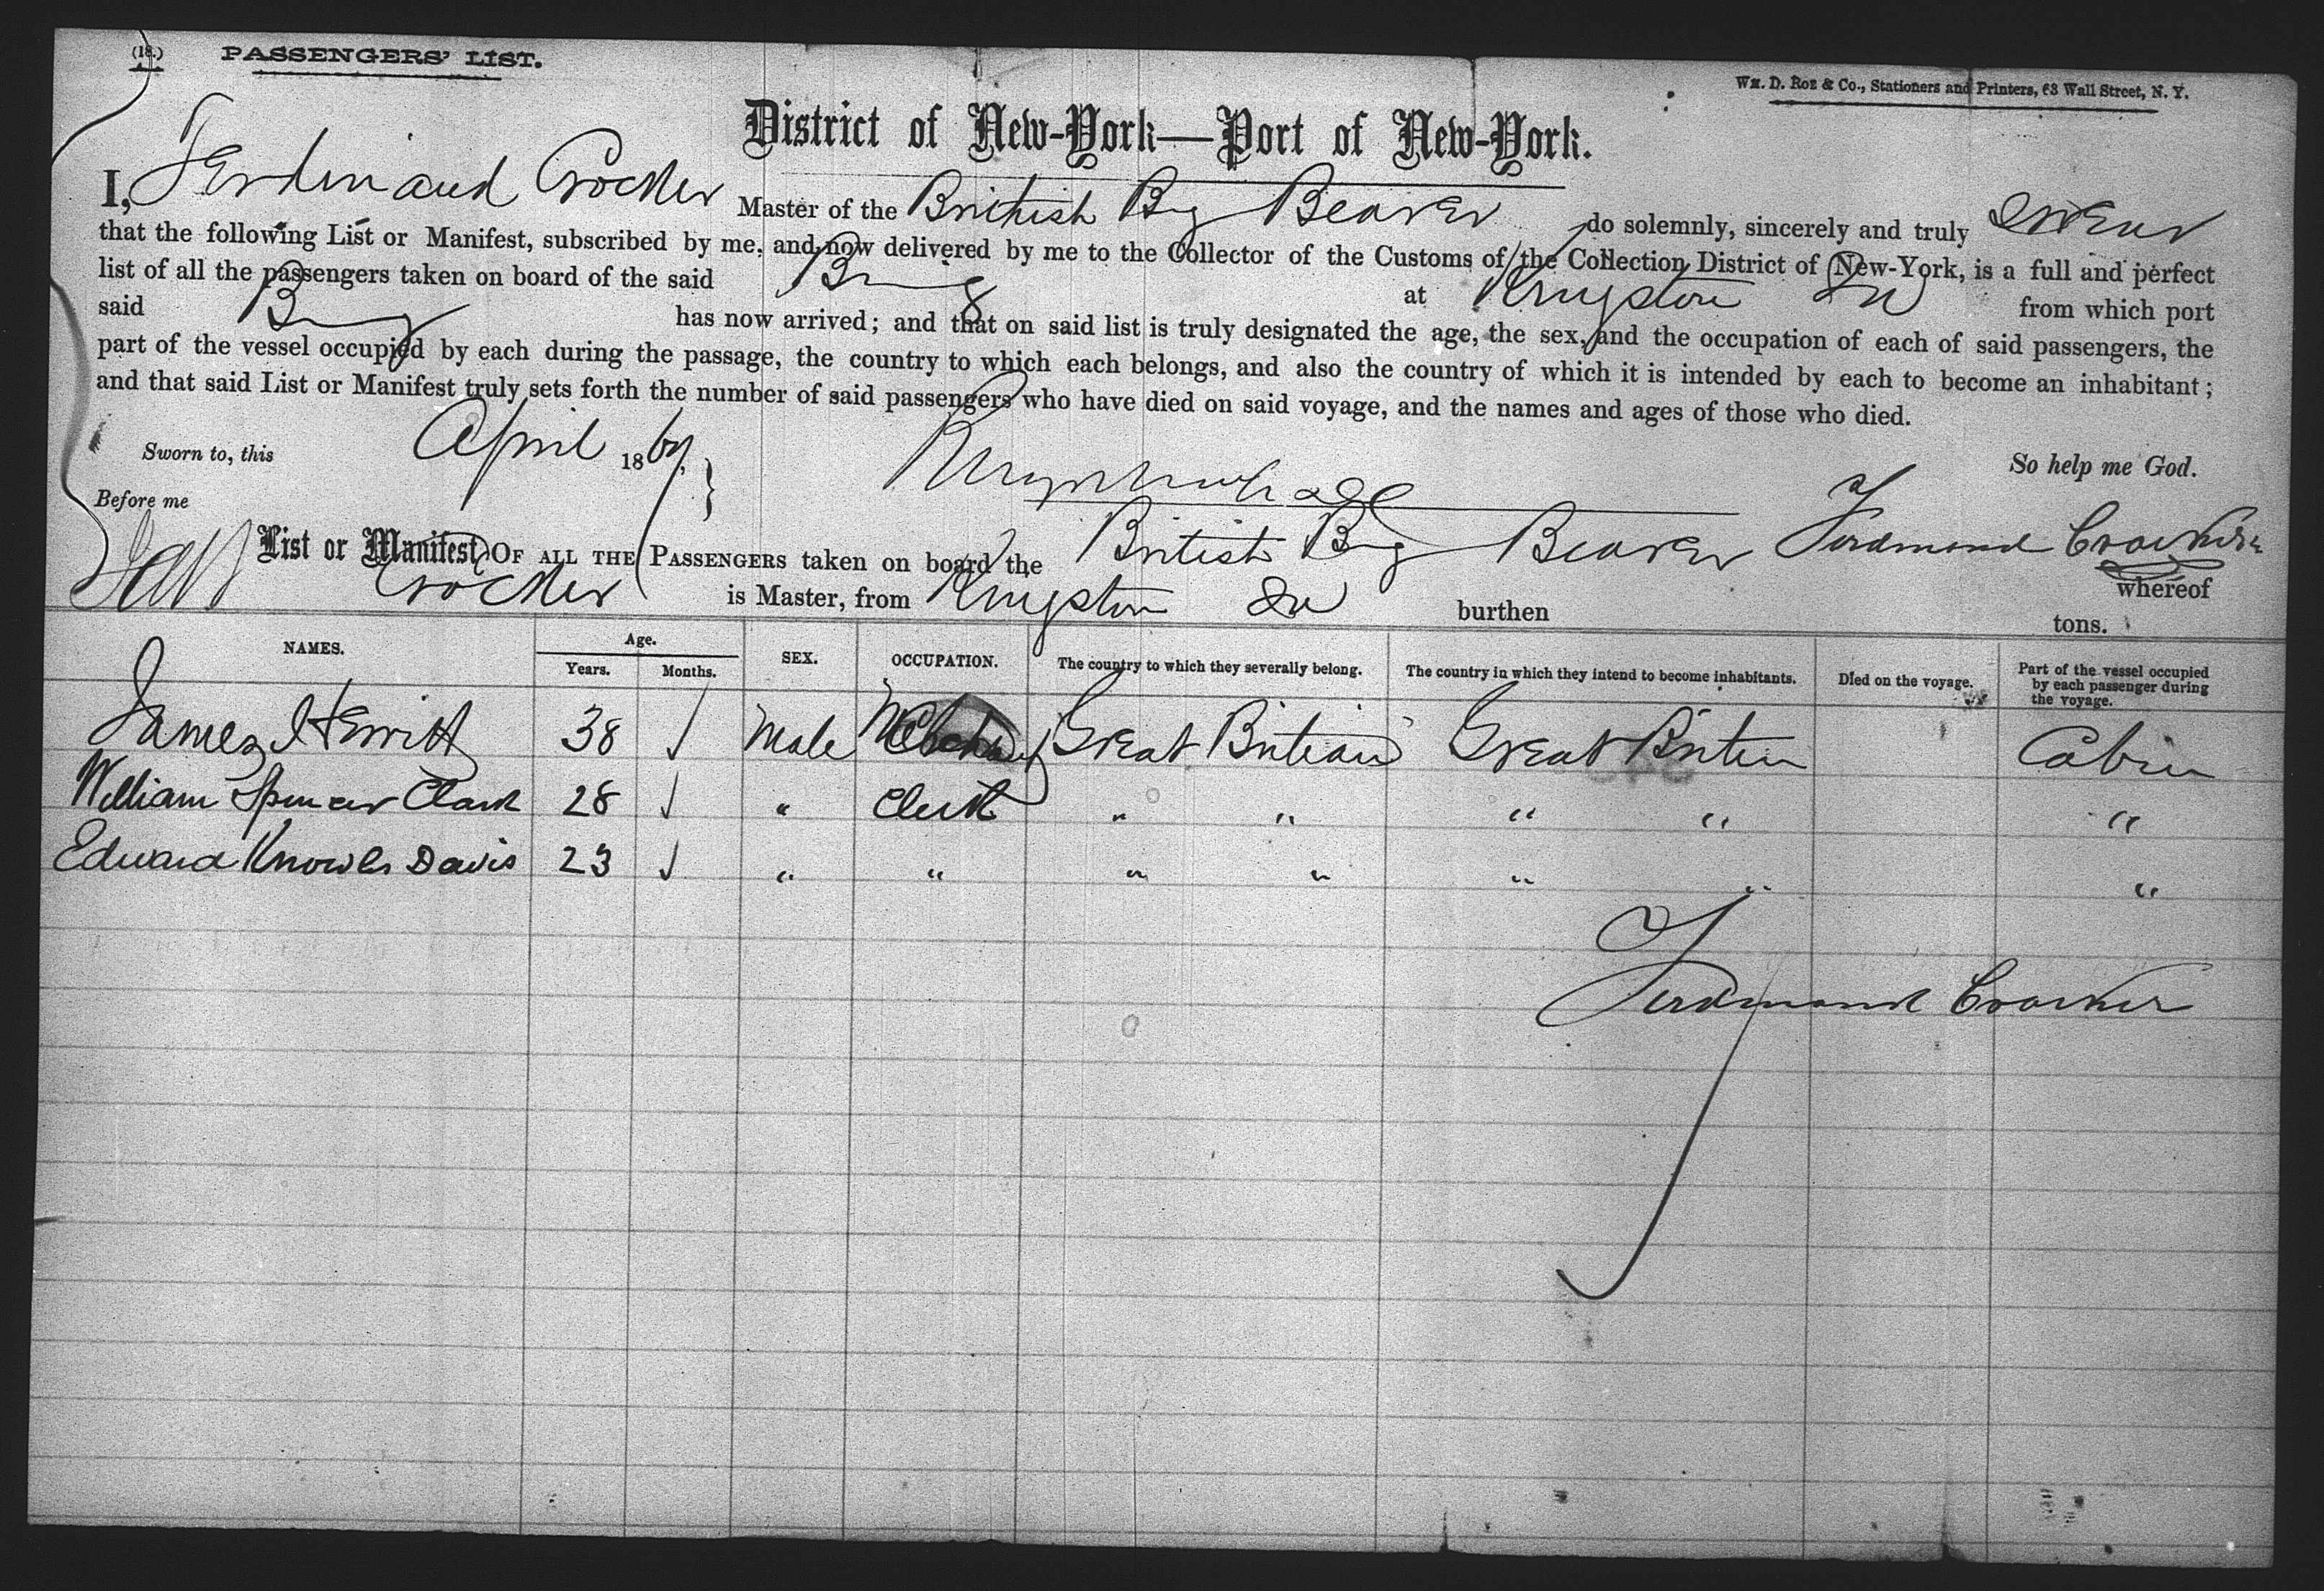 (18.) PASSENGERS' LIST.
Wm. D. Roe & Co., Stationers and Printers, 63 Wall Street, N. Y.
District of New-York—Port of New-York.
I, Ferdinand Crocker Master of the British Brig Beaver do solemnly, sincerely and truly swear
that the following List or Manifest, subscribed by me, and now delivered by me to the Collector of the Customs of the Collection District of New-York, is a full and perfect
list of all the passengers taken on board of the said Brig at Kingston Ja from which port
said Brig has now arrived; and that on said list is truly designated the age, the sex, and the occupation of each of said passengers, the
part of the vessel occupied by each during the passage, the country to which each belongs, and also the country of which it is intended by each to become an inhabitant;
and that said List or Manifest truly sets forth the number of said passengers who have died on said voyage, and the names and ages of those who died.
Sworn to, this April 1867, So help me God.
Before me
Ferdinand Crocker
List or Manifest OF ALL THE PASSENGERS taken on board the British Brig Beaver whereof
Crocker is Master, from Kingston Ja burthen tons.
NAMES. Age. Years. Months. SEX. OCCUPATION. The country to which they severally belong. The country in which they intend to become inhabitants. Died on the voyage. Part of the vessel occupied by each passenger during the voyage.
James Hewitt 38 ✓ Male Great Britian Great Briten Cabin
William Spencer Clark 28 ✓ " Clerk " " " " "
Edward Knowles Davis 23 ✓ " " " " " " "
Ferdinand Crocker